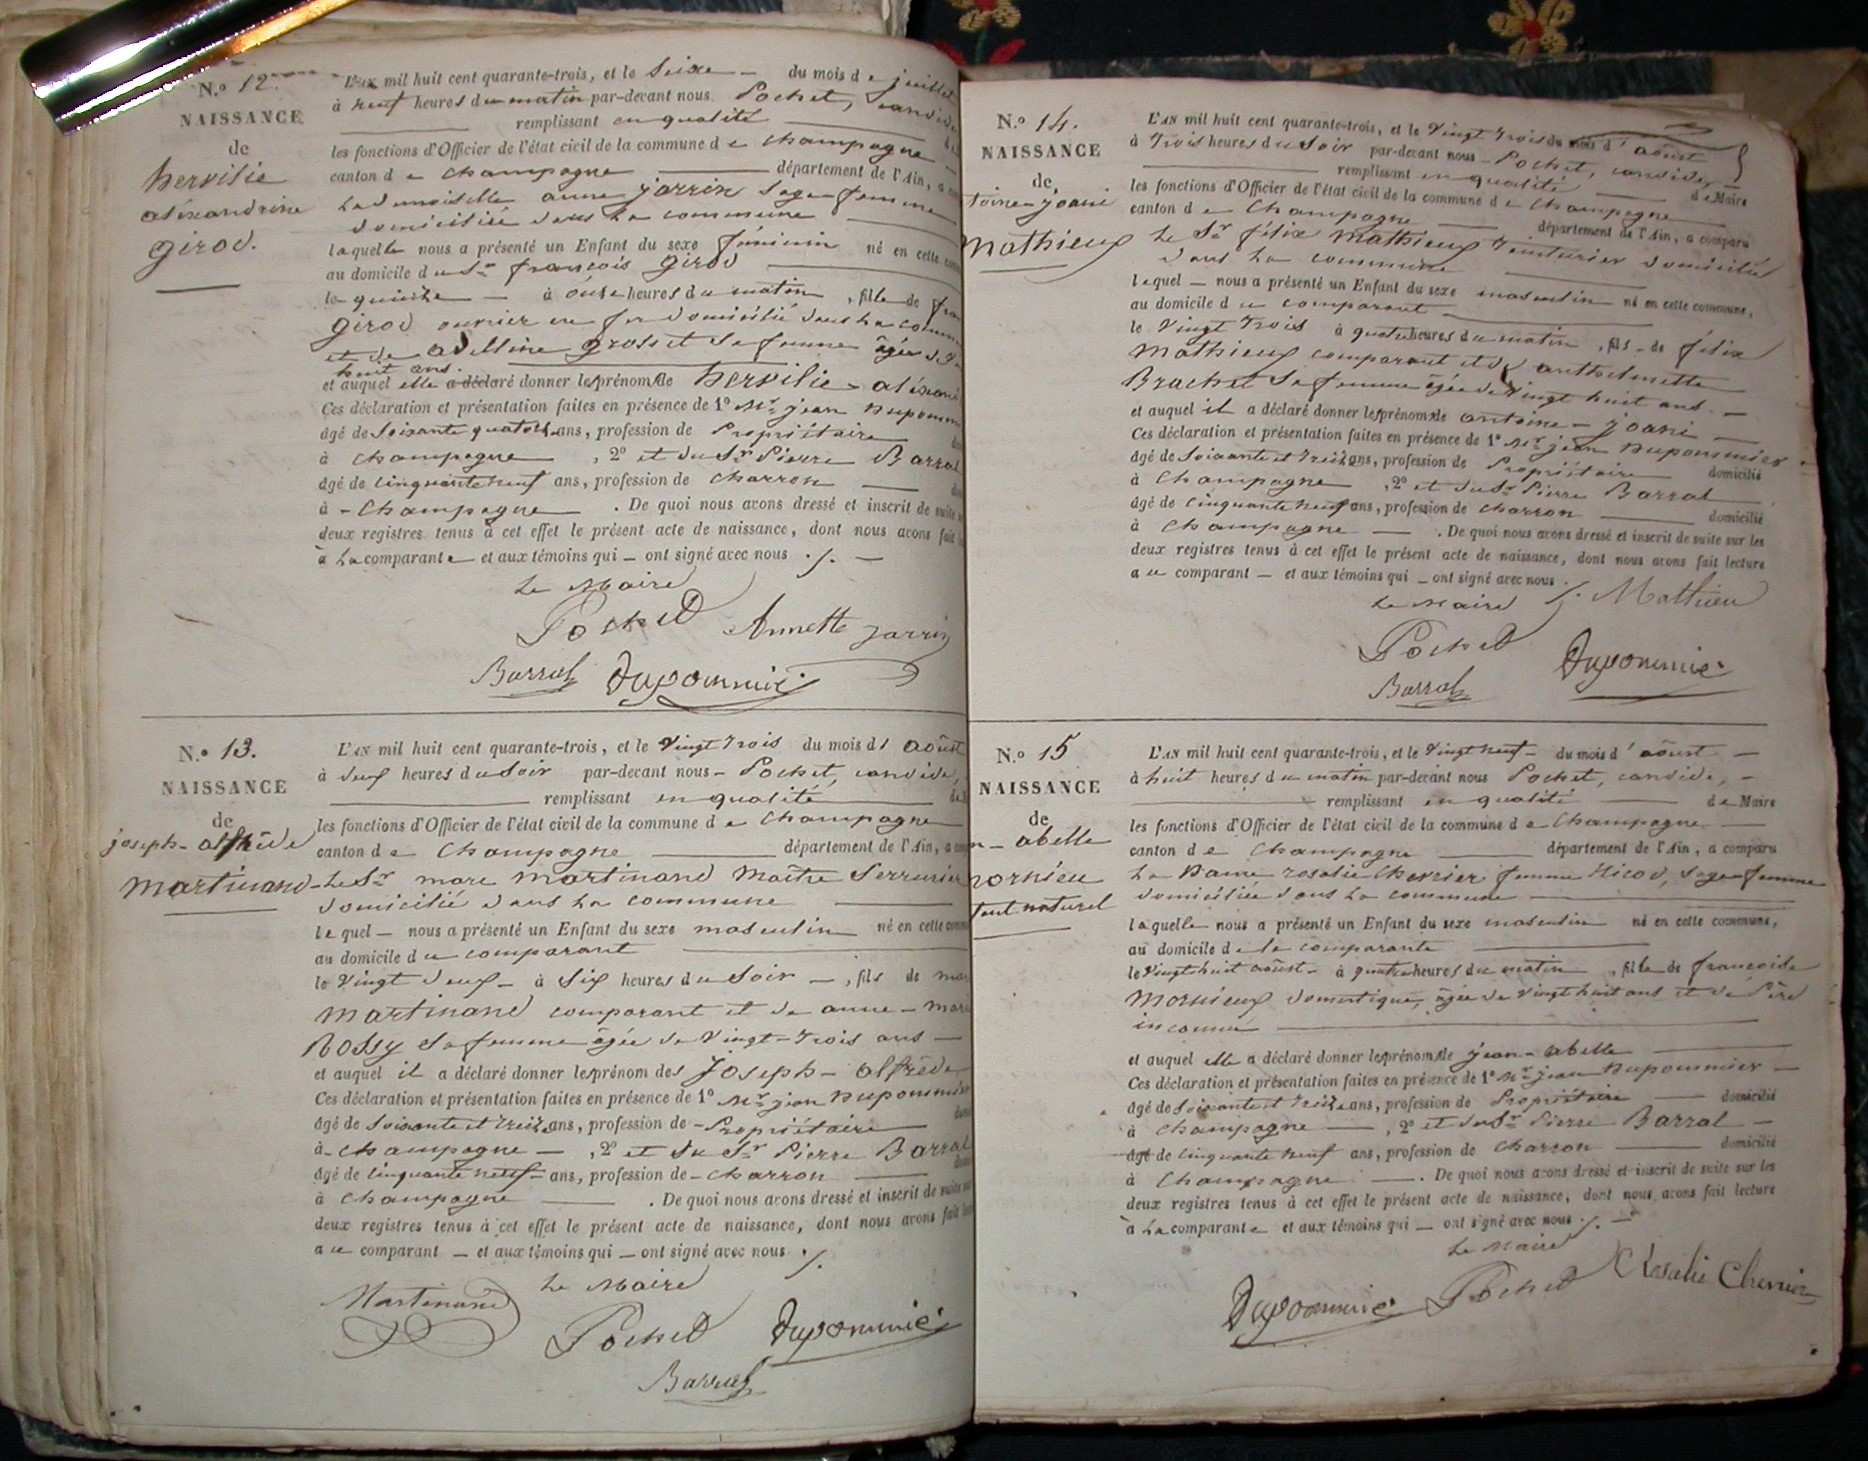 N.º 12.
NAISSANCE
de
hervilie
aléxandrine
girod.
L'AN mil huit cent quarante-trois, et le Seize du mois de juillet
à neuf heures du matin par-devant nous Pochet, candide
remplissant en qualité
les fonctions d'Officier de l'état civil de la commune de Champagne
canton de Champagne département de l'Ain, a
La demoiselle anne jarrin Sage femme
domiciliée dans La commune
laquelle nous a présenté un Enfant du sexe féminin né en cette
au domicile du Sr françois girod
le quinze à onze heures du matin, fille de
girod ouvrier en fer domicilié dans La
et de adelline grosset Sa femme âgée de
huit ans.
et auquel elle a déclaré donner les prénoms de hervilie
Ces déclaration et présentation faites en présence de 1º Mr jean
âgé de Soixante quatorze ans, profession de Propriétaire
à Champagne, 2º et du Sr Pierre Barral
âgé de Cinquante neuf ans, profession de Charron
à Champagne. De quoi nous avons dressé et inscrit de suite
deux registres tenus à cet effet le présent acte de naissance, dont nous avons fait
à La comparante et aux témoins qui ont signé avec nous
Le Maire
Pochet Annette jarrin
Barral Dupommié
N.º 13.
NAISSANCE
de
joseph-alfrède
Martinand
L'AN mil huit cent quarante-trois, et le Vingt Trois du mois d'août
à deux heures du Soir par-devant nous Pochet, candide,
remplissant en qualité
les fonctions d'Officier de l'état civil de la commune de Champagne
canton de Champagne département de l'Ain, a
Le Sr marc Martinand Maître Serrurier
domicilié dans La commune
lequel nous a présenté un Enfant du sexe masculin né en cette
au domicile du comparant
le Vingt deux à Six heures du Soir, fils de
Martinand comparant et de anne
Rossy Sa femme âgée de Vingt-Trois ans
et auquel il a déclaré donner les prénom des Joseph-alfrède
Ces déclaration et présentation faites en présence de 1º Mr jean Dupommier
âgé de Soixante et treize ans, profession de Propriétaire
à Champagne, 2º et du Sr Pierre Barral
âgé de Cinquante neuf ans, profession de Charron
à Champagne. De quoi nous avons dressé et inscrit de suite
deux registres tenus à cet effet le présent acte de naissance, dont nous avons fait
au comparant et aux témoins qui ont signé avec nous
Martinand Le Maire
Pochet Dupommié
Barral
N.º 14.
NAISSANCE
de
joani
Mathieux
L'AN mil huit cent quarante-trois, et le Vingt Trois du mois d'août
à Trois heures du Soir par-devant nous Pochet, candide,
remplissant en qualité de Maire
les fonctions d'Officier de l'état civil de la commune de Champagne
canton de Champagne département de l'Ain, a comparu
Le Sr félix Mathieux Teinturier domicilié
dans La commune
lequel nous a présenté un Enfant du sexe masculin né en cette commune,
au domicile du comparant
le Vingt Trois à quatre heures du matin, fils de félix
Mathieux comparant et de anthelmette
Brachet Sa femme âgée de Vingt huit ans.
et auquel il a déclaré donner les prénoms de antoine-joani
Ces déclaration et présentation faites en présence de 1º Mr jean Dupommier
âgé de Soixante et treize ans, profession de Propriétaire domicilié
à Champagne, 2º et du Sr Pierre Barral
âgé de Cinquante neuf ans, profession de Charron domicilié
à Champagne. De quoi nous avons dressé et inscrit de suite sur les
deux registres tenus à cet effet le présent acte de naissance, dont nous avons fait lecture
au comparant et aux témoins qui ont signé avec nous
Le Maire Mathieu
Pochet Dupommié
Barral
N.º 15
NAISSANCE
de
abelle
naturel
L'AN mil huit cent quarante-trois, et le Vingt neuf du mois d'août
à huit heures du matin par-devant nous Pochet, candide,
remplissant en qualité de Maire
les fonctions d'Officier de l'état civil de la commune de Champagne
canton de Champagne département de l'Ain, a comparu
La Dame rosalie Chervier femme Nicod, Sage femme
domiciliée dans La commune
laquelle nous a présenté un Enfant du sexe masculin né en cette commune,
au domicile de la comparante
le Vingt huit août à quatre heures du matin, fils de françoise
Mornieux domestique, âgée de Vingt huit ans et de Père
inconnu
et auquel elle a déclaré donner les prénoms de jean-abelle
Ces déclaration et présentation faites en présence de 1º Mr jean Dupommier
âgé de Soixante et treize ans, profession de Propriétaire domicilié
à Champagne, 2º et du Sr Pierre Barral
âgé de Cinquante neuf ans, profession de Charron domicilié
à Champagne. De quoi nous avons dressé et inscrit de suite sur les
deux registres tenus à cet effet le présent acte de naissance, dont nous avons fait lecture
à La comparante et aux témoins qui ont signé avec nous
Le Maire
Dupommié Pochet Rosalie Chervier